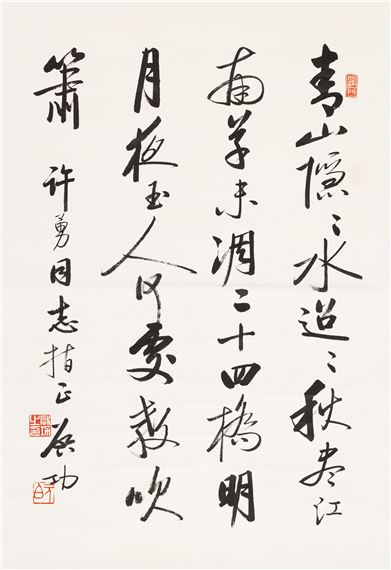 青山隐〻水迢〻秋尽江
南草未凋二十四橋明
月夜玉人何處教吹
簫
许勇同志指正 启功